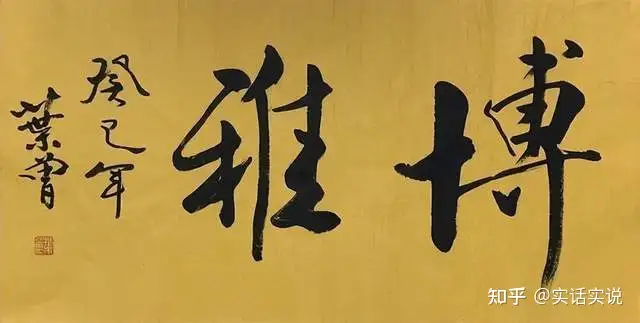 博雅
癸巳年
葉
知乎 @实话实说